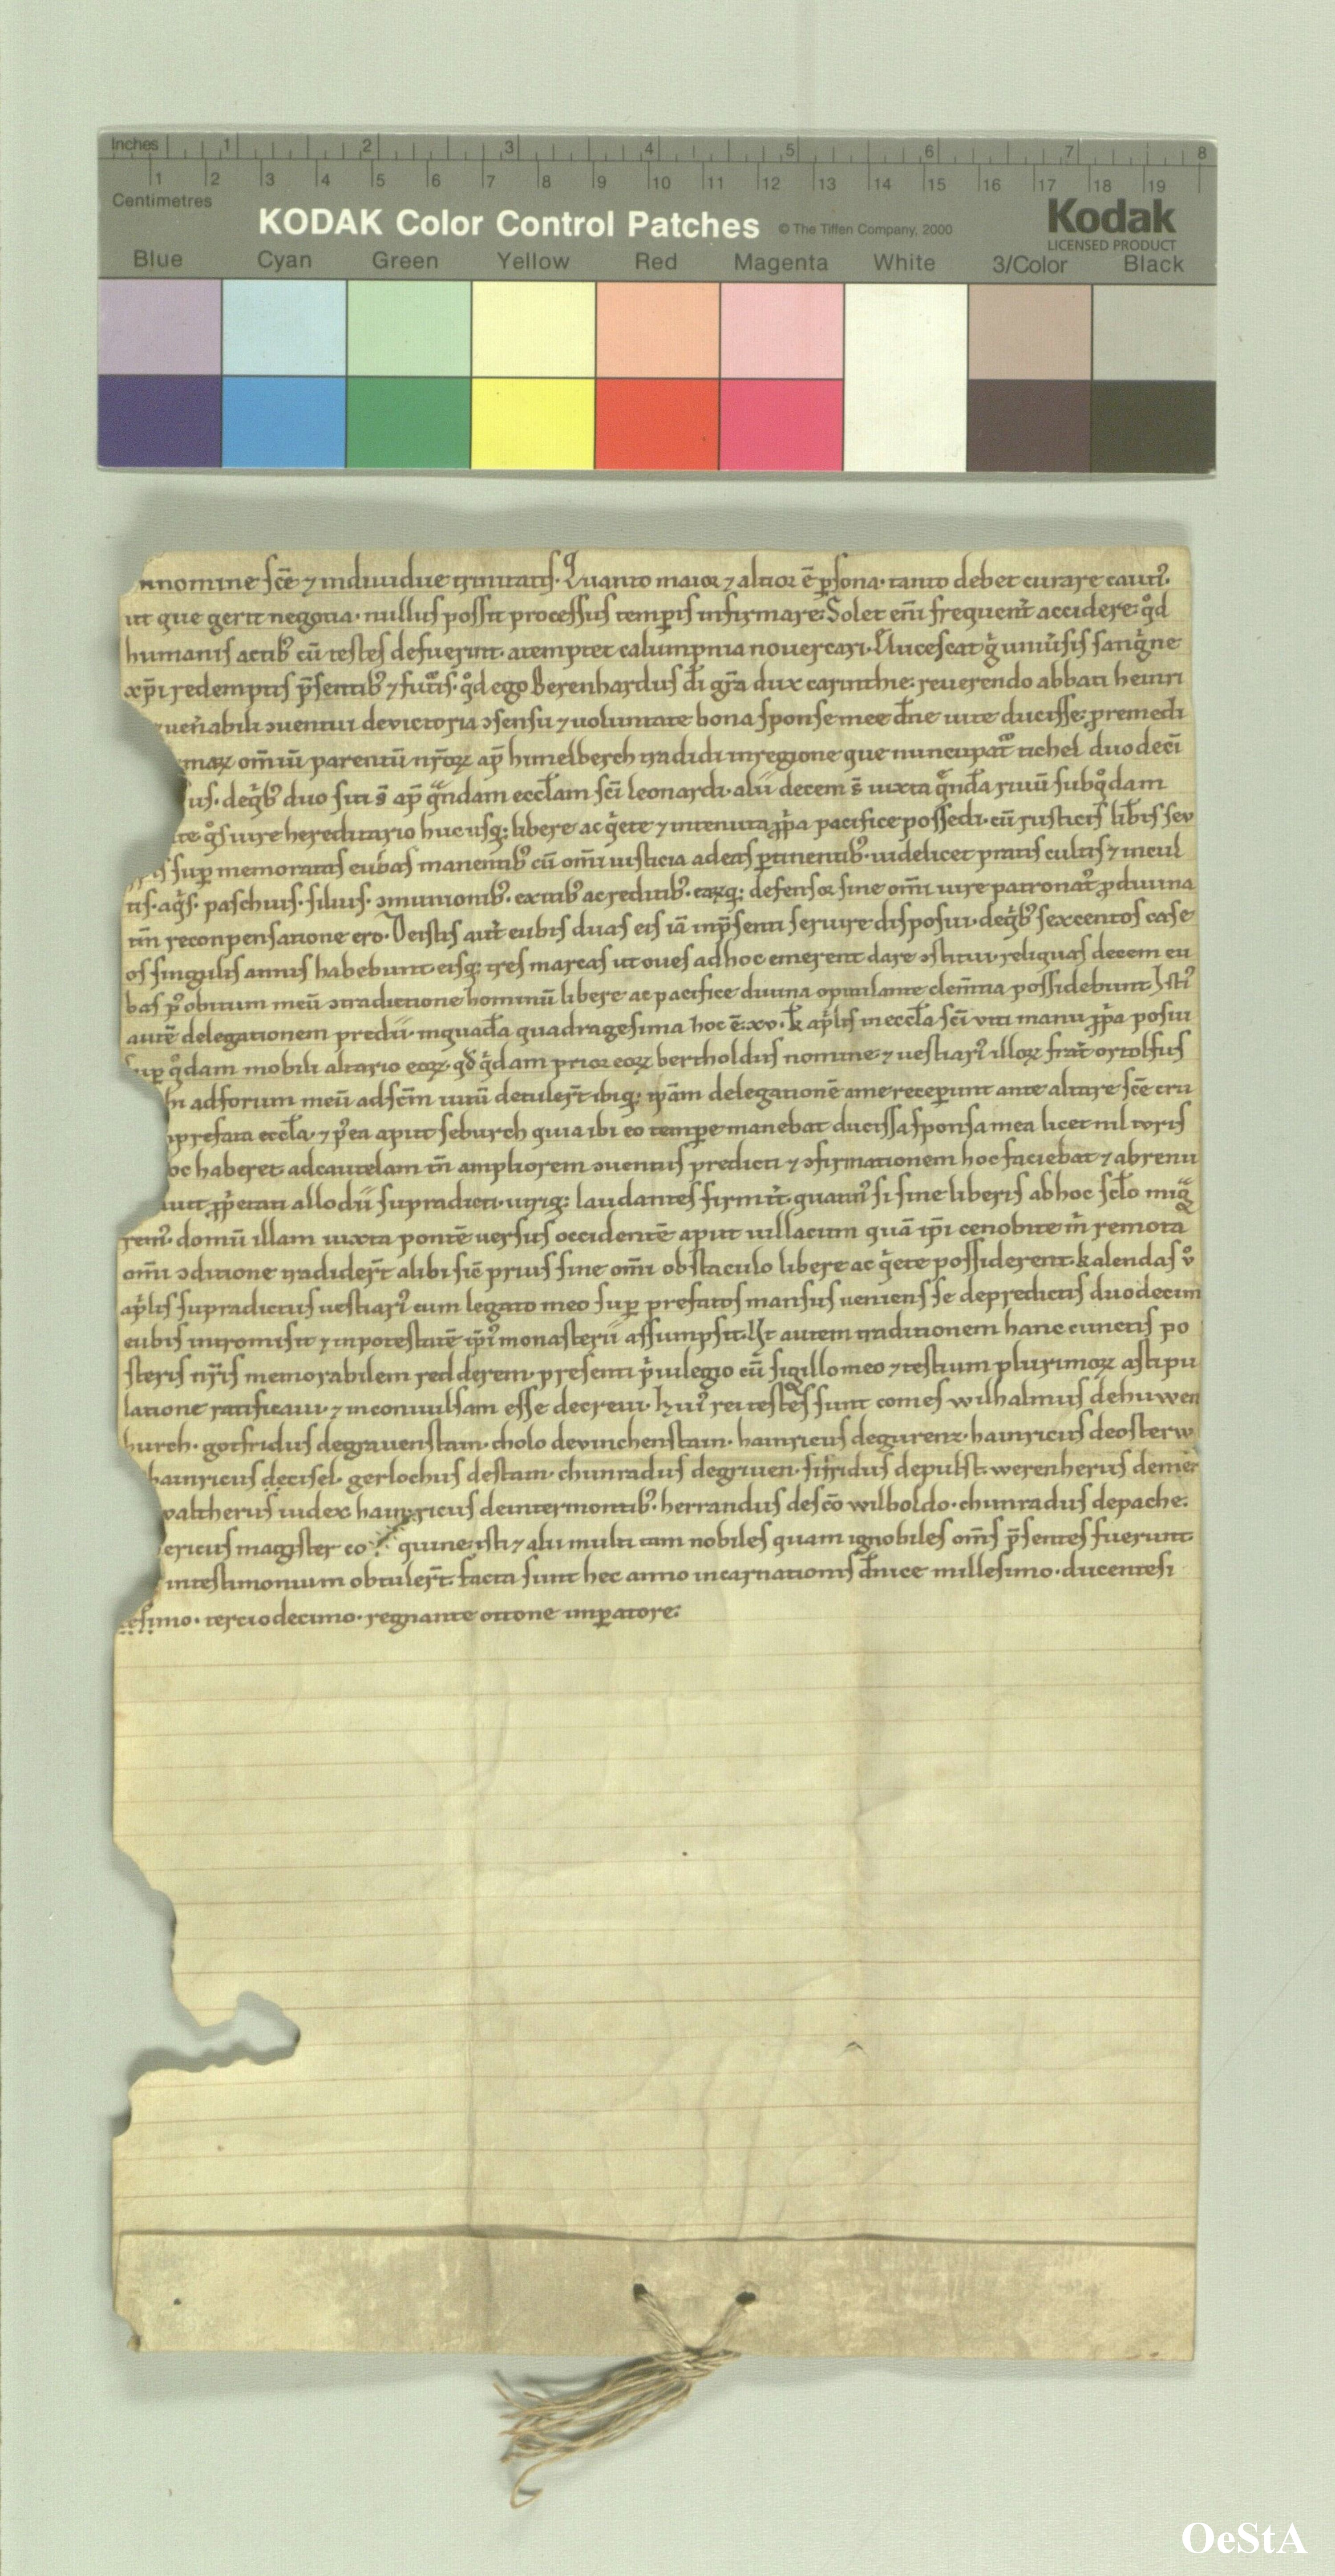 Inches 1 2 3 4 5 6 7 8
1 2 3 4 5 6 7 8 9 10 11 12 13 14 15 16 17 18 19
Centimetres
KODAK Color Control Patches © The Tiffen Company, 2000 Kodak
LICENSED PRODUCT
Blue Cyan Green Yellow Red Magenta White 3/Color Black
nnomine sc̄e ⁊ indiuidue trinitatis. Quanto maior ⁊ altior ē p̱sona. tanto debet curare cauti᾿.
ut que gerit negotia. nullus possit processus temp̱is infirmare. Solet eni̅ frequent̄ accidere. qͦd
humanis actib᾿ cū testes defuerint. atemptet calumpnia nouercari. Lucescat gͥ uniu̅sis sangͥne
xp̄i redemptis p̄sentib᾿ ⁊ fut᾿is. qͦd ego Berenhardus di̅ gr̄a dux carinthie. reuerendo abbati heinri
uen̄abili ɔuentui de victoria ɔsensu ⁊ uoluntate bona sponse mee dn̄e uite ducisse. p remedi
marꝝ om̄iū parentū nr̄orꝝ ap̄ himelberch tradidi in regione que nuncupat᾿ tichel duodeci̅
us. de qͥb᾿ duo siti s̄ ap̄ qͣndam eccl̄am sc̄i leonardi. alii decem s̄ iuxta qͣndā riuū sub qͦdam
te qͦs iure hereditario hucusq; libere ac qͥete ⁊ in tenuta ꝓpͥa pacifice possedi. cū rusticis lib̄is seu
sup̱ memoratas eubas manentib᾿ cū om̄i iusticia ad eas p̱tinentib᾿. uidelicet pratis cultis ⁊ incul
tis. aqͥs. paschuis. siluis. ɔmunionib᾿. exitib᾿ ac reditib᾿. earꝝq; defensor sine om̄i iure patronat᾿ ꝓ diuina
tm̄ reconpensatione ero. De istis aut̄ eubis duas eis iā in p̄senti seruire disposui. de qͥb᾿ sexcentos case
os singulis annis habebunt. eisq; tres marcas ut oues ad hoc emerent dare ɔstitui. reliquas decem eu
bas pͦ obitum meū ɔtradictione hominū libere ac pacifice diuina opitulante clem̄tia possidebunt. Isti᾿
autē delegationem predii. in quad̄a quadragesima hoc ē. xv. k̄ ap̄lis in eccl̄a sc̄i viti manu ꝓpͥa posui
sup̱ qͦdam mobili altario eorꝝ. qd̄ qͥdam prior eorꝝ bertholdus nomine. ⁊ uestiari᾿ illorꝝ frat̄ ortolfus
ad forum meū ad sc̄m uitū detuler̄t ibiq; ip̄am delegationē a me receperunt ante altare sc̄e cru
prefata eccl̄a. ⁊ pͦea aput seburch quia ibi eo tempe manebat ducissa sponsa mea licet nil iuris
oc haberet. ad cautelam tn̄ ampliorem ɔuentus predicti ⁊ ɔfirmationem hoc faciebat ⁊ abrenu
ꝓpͥetati allodii supradicti. utriq; laudantes firmit̄. quatin᾿ si sine liberis ab hoc scl̄o migͣ
rem᾿. domū illam iuxta pontē uersus occidentē aput uillacum quā ip̄i cenobite in̄ remota
om̄i ɔditione tradider̄t alibi sic̄ prius sine om̄i obstaculo libere ac qͥete possiderent. kalendas uͦ
ap̄lis supradictus uestiari᾿ cum legato meo sup̱ prefatos mansus ueniens se de predictis duodecim
eubis intromisit ⁊ in potestatē ip̄i᾿ monasterii assumpsit. Ut autem traditionem hanc cunctis po
steris nr̄is memorabilem redderem. presenti pͥuilegio cū sigillo meo ⁊ testium plurimorꝝ astipu
latione ratificaui. ⁊ inconuulsam esse decreui. hui᾿ rei testes sunt comes wilhalmus de huwen
burch. gotfridus de grauenstain. cholo de vinchenstain. hainricus de gurenz. hainricus de osterw
hainricus de cisel. gerlochus de stain. chunradus de griuen. sifridus de pulst. werenherus de
waltherus iudex. hainricus de intermontib᾿. herrandus de sc̄o wilboldo. chunradus de pache.
ericus magister quine. isti ⁊ alii multi tam nobiles quam ignobiles om̄s p̄sentes fuerunt.
in testimonium obtuler̄t. facta sunt hec anno incarnationis dn̄ice millesimo. ducentesi
tercio decimo. regnante ottone imp̱atore.
OeStA